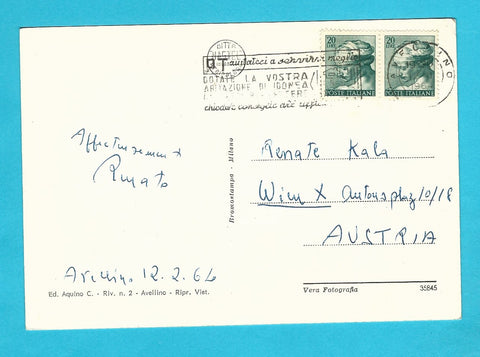 PT aiutateci a servirvi meglio
DOTATE LA VOSTRA
ABITAZIONE DI IDONEA
chiedete consiglio agli uffici
20 LIRE
20 LIRE
POSTE ITALIANE
POSTE ITALIANE
Affettuosamente
Renato
Avellino 12.2.64
Ed. Aquino C. - Riv. n. 2 - Avellino - Ripr. Viet.
Bromostampa - Milano
Renate Kala
Wien X Antonsplaz 10/18
AUSTRIA
Vera Fotografia
35845